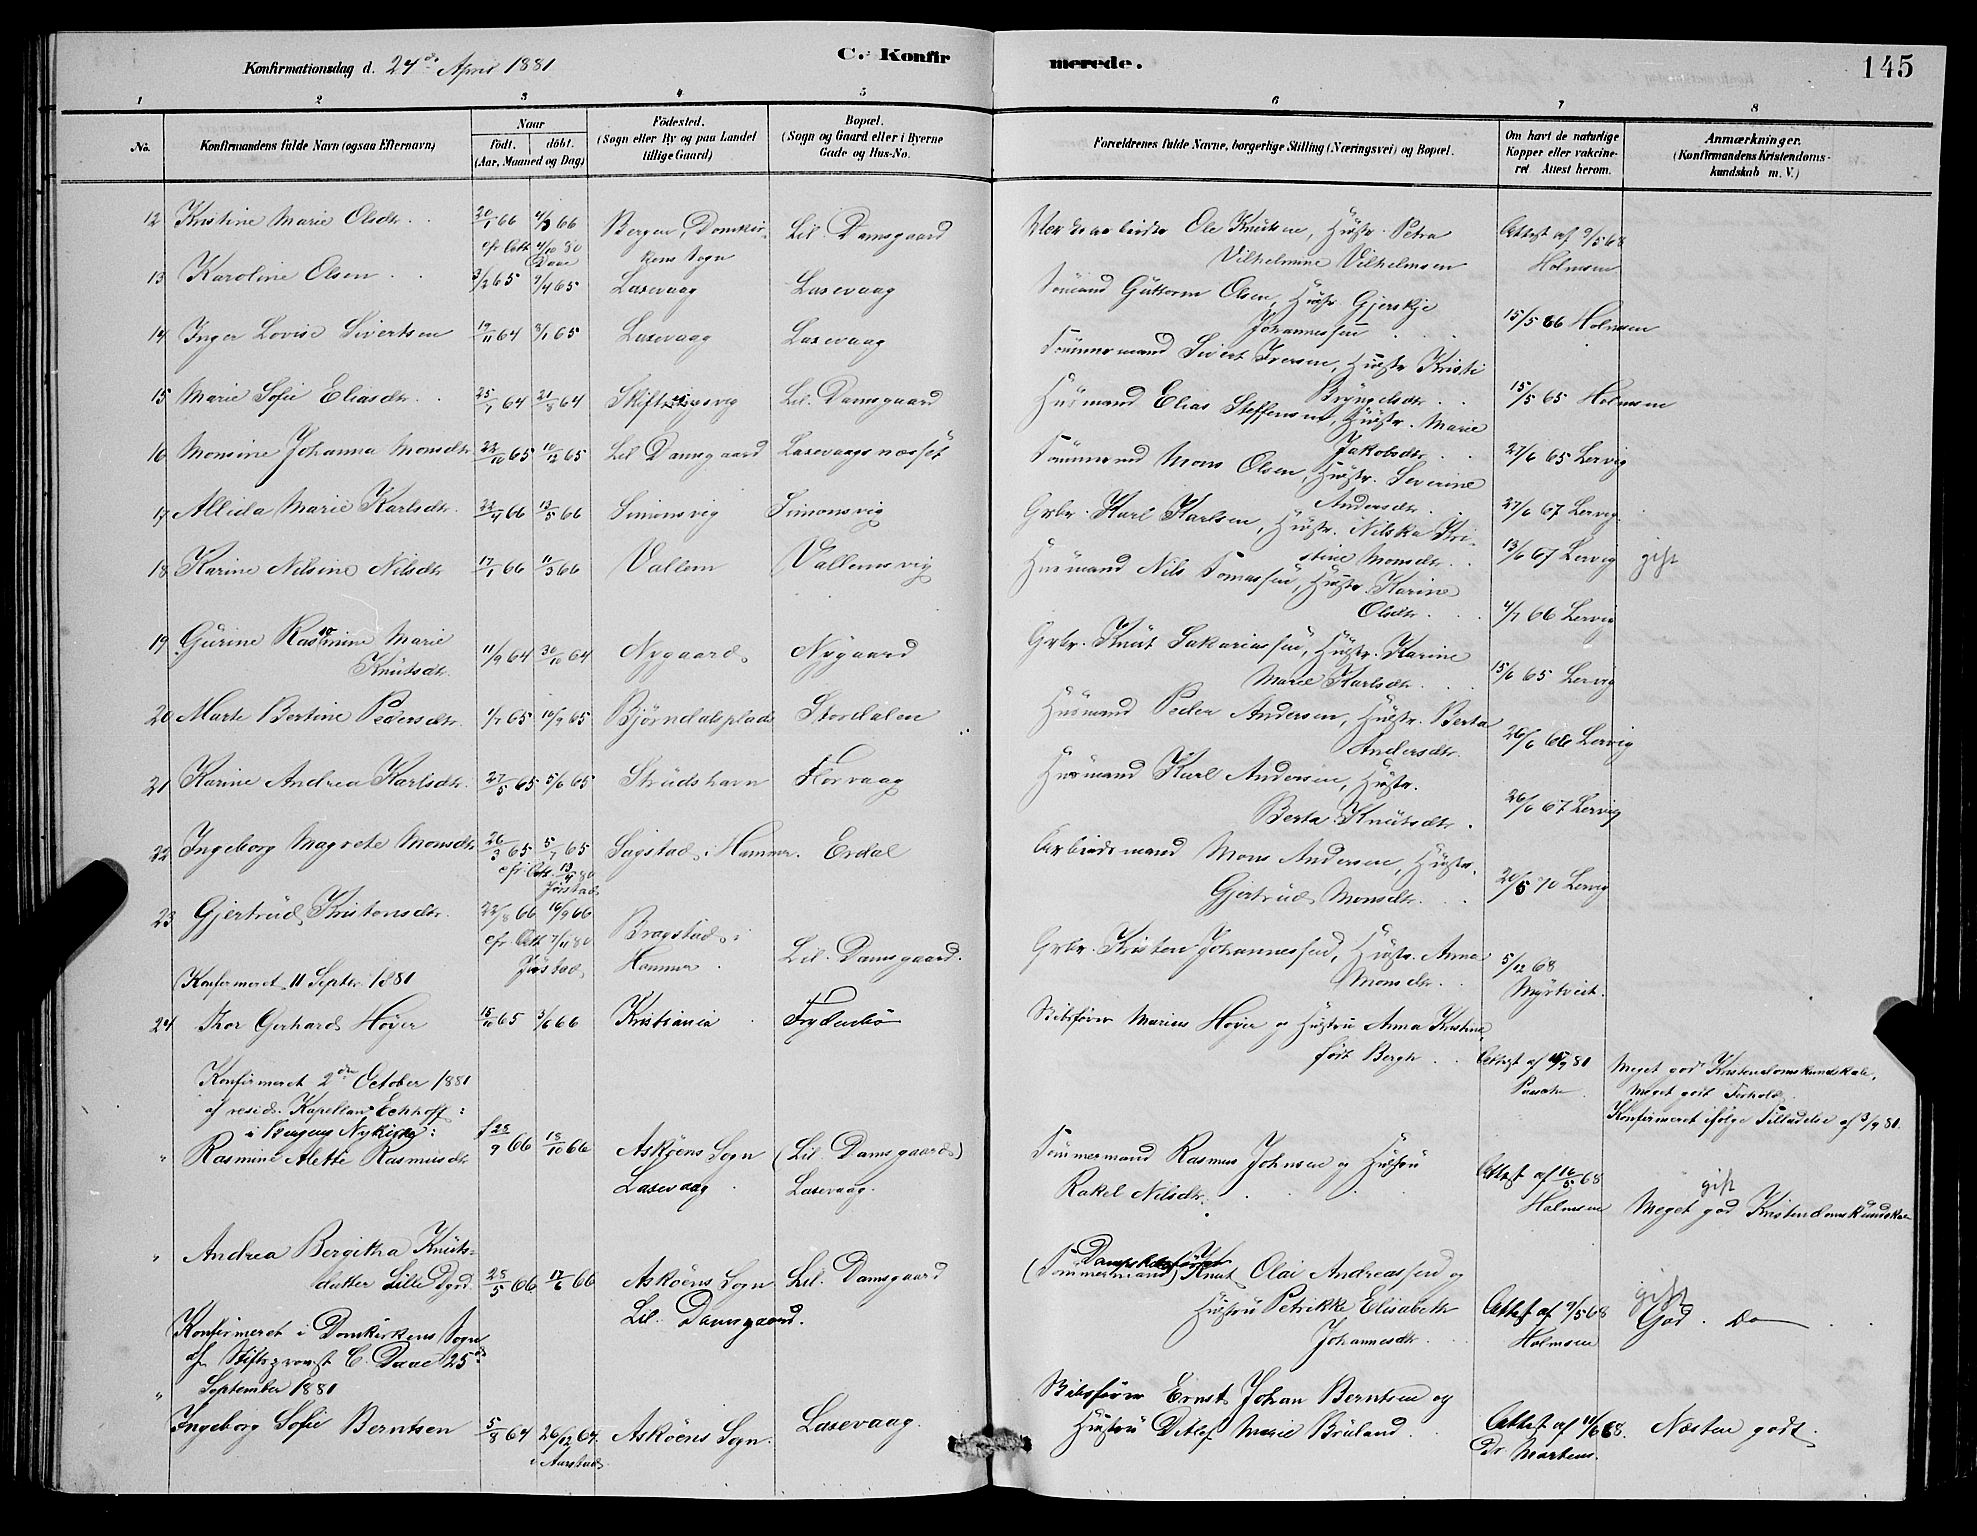 Konfirmationsdag d. 24de April 1881
C. Konfirmerede.
145
1 2 3 4 5 6 7 8
No.
Konfirmandens fulde Navn (ogsaa Efternavn)
Naar
födt. döbt.
(Aar, Maaned og Dag)
Födested.
(Sogn eller By og paa Landet
tillige Gaard)
Bopæl.
(Sogn og Gaard eller i Byerne
Gade og Hus-No.
Forældrenes fulde Navne, borgerlige Stilling (Næringsvei) og Bopæl.
Om havt de naturlige
Kopper eller vakcine-
ret Attest herom.
Anmærkninger.
(Konfirmandens Kristendoms-
kundskab m. V.)
12 Kristine Marie Olsdtr. 20/1 66 4/3 66 Bergen, Domkir- Lil. Damsgaard Ole Knutsen, Hustr. Petra Attest af 9/5 68
cfr. Att. 4/10 80 kens Sogn Vilhelmine Vilhelmsen Holmsen
Daae
13 Karoline Olsen 3/2 65 9/4 65 Laxevaag Laxevaag Sömand Guttorm Olsen, Hustr. Gjerskje
Johannessen 15/5 66 Holmsen
14 Inger Lovise Sivertsen 19/11 64 8/1 65 Laxevaag Laxevaag Tömmermand Sivert Iversen, Hustr. Kristi
Bryngelsdtr. 15/5 65 Holmsen
15 Marie Sofie Eliasdtr. 25/7 64 21/8 64 Skiftingsvig Lil. Damsgaard Husmand Elias Steffensen, Hustr. Marie
Jakobsdtr. 27/6 65 Lervig
16 Monsine Johanna Monsdtr. 22/10 65 10/12 65 Lil. Damsgaard Laxevaagsnæsset Tömmermand Mons Olsen, Hustr. Severine
Andersdtr. 27/6 67 Lervig.
17 Allida Marie Karlsdtr. 22/4 66 13/5 66 Simonsvig Simonsvig Grbr. Karl Karlsen, Hustr. Nilska Kri-
stine Monsdtr. 13/6 67 Lervig gift
18 Karine Nilsine Nilsdtr. 17/1 66 11/3 66 Vallem Vallemsvig Husmand Nils Tomassen, Hustr. Karine
Olsdtr. 4/7 66 Lervig
19 Gurine Rasmine Marie
Knutsdtr. 11/9 64 30/10 64 Nygaard Nygaard Grbr. Knut Sakariassen, Hustr. Karine
Marie Karlsdtr. 15/6 65 Lervig
20 Marte Bertine Pedersdtr. 1/7 65 10/9 65 Björndalsplads Stordalen Husmand Peder Andersen, Hustr. Berta
Andersdtr. 26/6 66 Lervig
21 Karine Andrea Karlsdtr. 27/5 65 5/6 65 Strudshavn Florvaag Husmand Karl Andersen, Hustr.
Berta Knutsdtr. 26/6 67 Lervig
22 Ingeborg Magrete Monsdtr. 26/3 65 5/7 65 Sagstad i Hammer. Erdal Arbeidsmand Mons Andersen, Hustr.
cfr. Att. 13/4 80 Gjertrud Monsdtr. 20/5 70 Lervig
Jörstad
23 Gjertrud Kristensdtr. 22/8 66 16/9 66 Bragstad i
Hammer. Lil. Damsgaard. Grbr. Kristen Johannessen, Hustr. Anna
cfr. Att. 7/11 80 Monsdtr. 5/12 68
Jörstad Myrtveit.
Konfirmeret 11 Septbr. 1881
24 Thor Gerhard Höyer 15/11 65 3/6 66 Kristiania Frydenbö Skibsförer Marius Höyer og Hustru Anna Kristine,
födt Bergh Attest af 81
Meget god Kristendomskundskab,
Meget godt Forhold.
Konfirmeret ifölge Tilladelse af 3/9 81.
Konfirmeret 2den October 1881
af resid. Kapellan Eckhoff
i Bergens Nykirke:
" Rasmine Alette Rasmusdtr f 28/7 66 18/10 66 Asköens Sogn (Lil. Damsgaard) Tömmermand Rasmus Johnsen og Hustru Attest af 16/5 68
Laxevaag Laxevaag. Rakel Nilsdtr. Holmsen
gift
Meget god Kristendomskundskab
" Andrea Bergitha Knuts-
datter Lille Dgrd. 25/5 66 17/6 66 Asköens Sogn Lil. Damsgaard
Lil. Damsgaard.
Dampskibsförer
(Tömmermand) Knut Olai Andreassen og
Hustru Petrikke Elisabeth
Johannesdtr. Attest af 9/5 68
Holmsen
gift
God. Do
Konfirmeret i Domkirkens Sogn
af Stiftsprovst C. Daae 25de
September 1881
" Ingeborg Sofie Berntsen 5/8 64 26/12 64 Asköens Sogn. Laxevaag.
i Aarstad
Skibsförer Ernst Johan Berntsen og
Hustru Ditlef Marie Bruland. Attest af 11/6 68. Næsten godt.
Dr Martens.